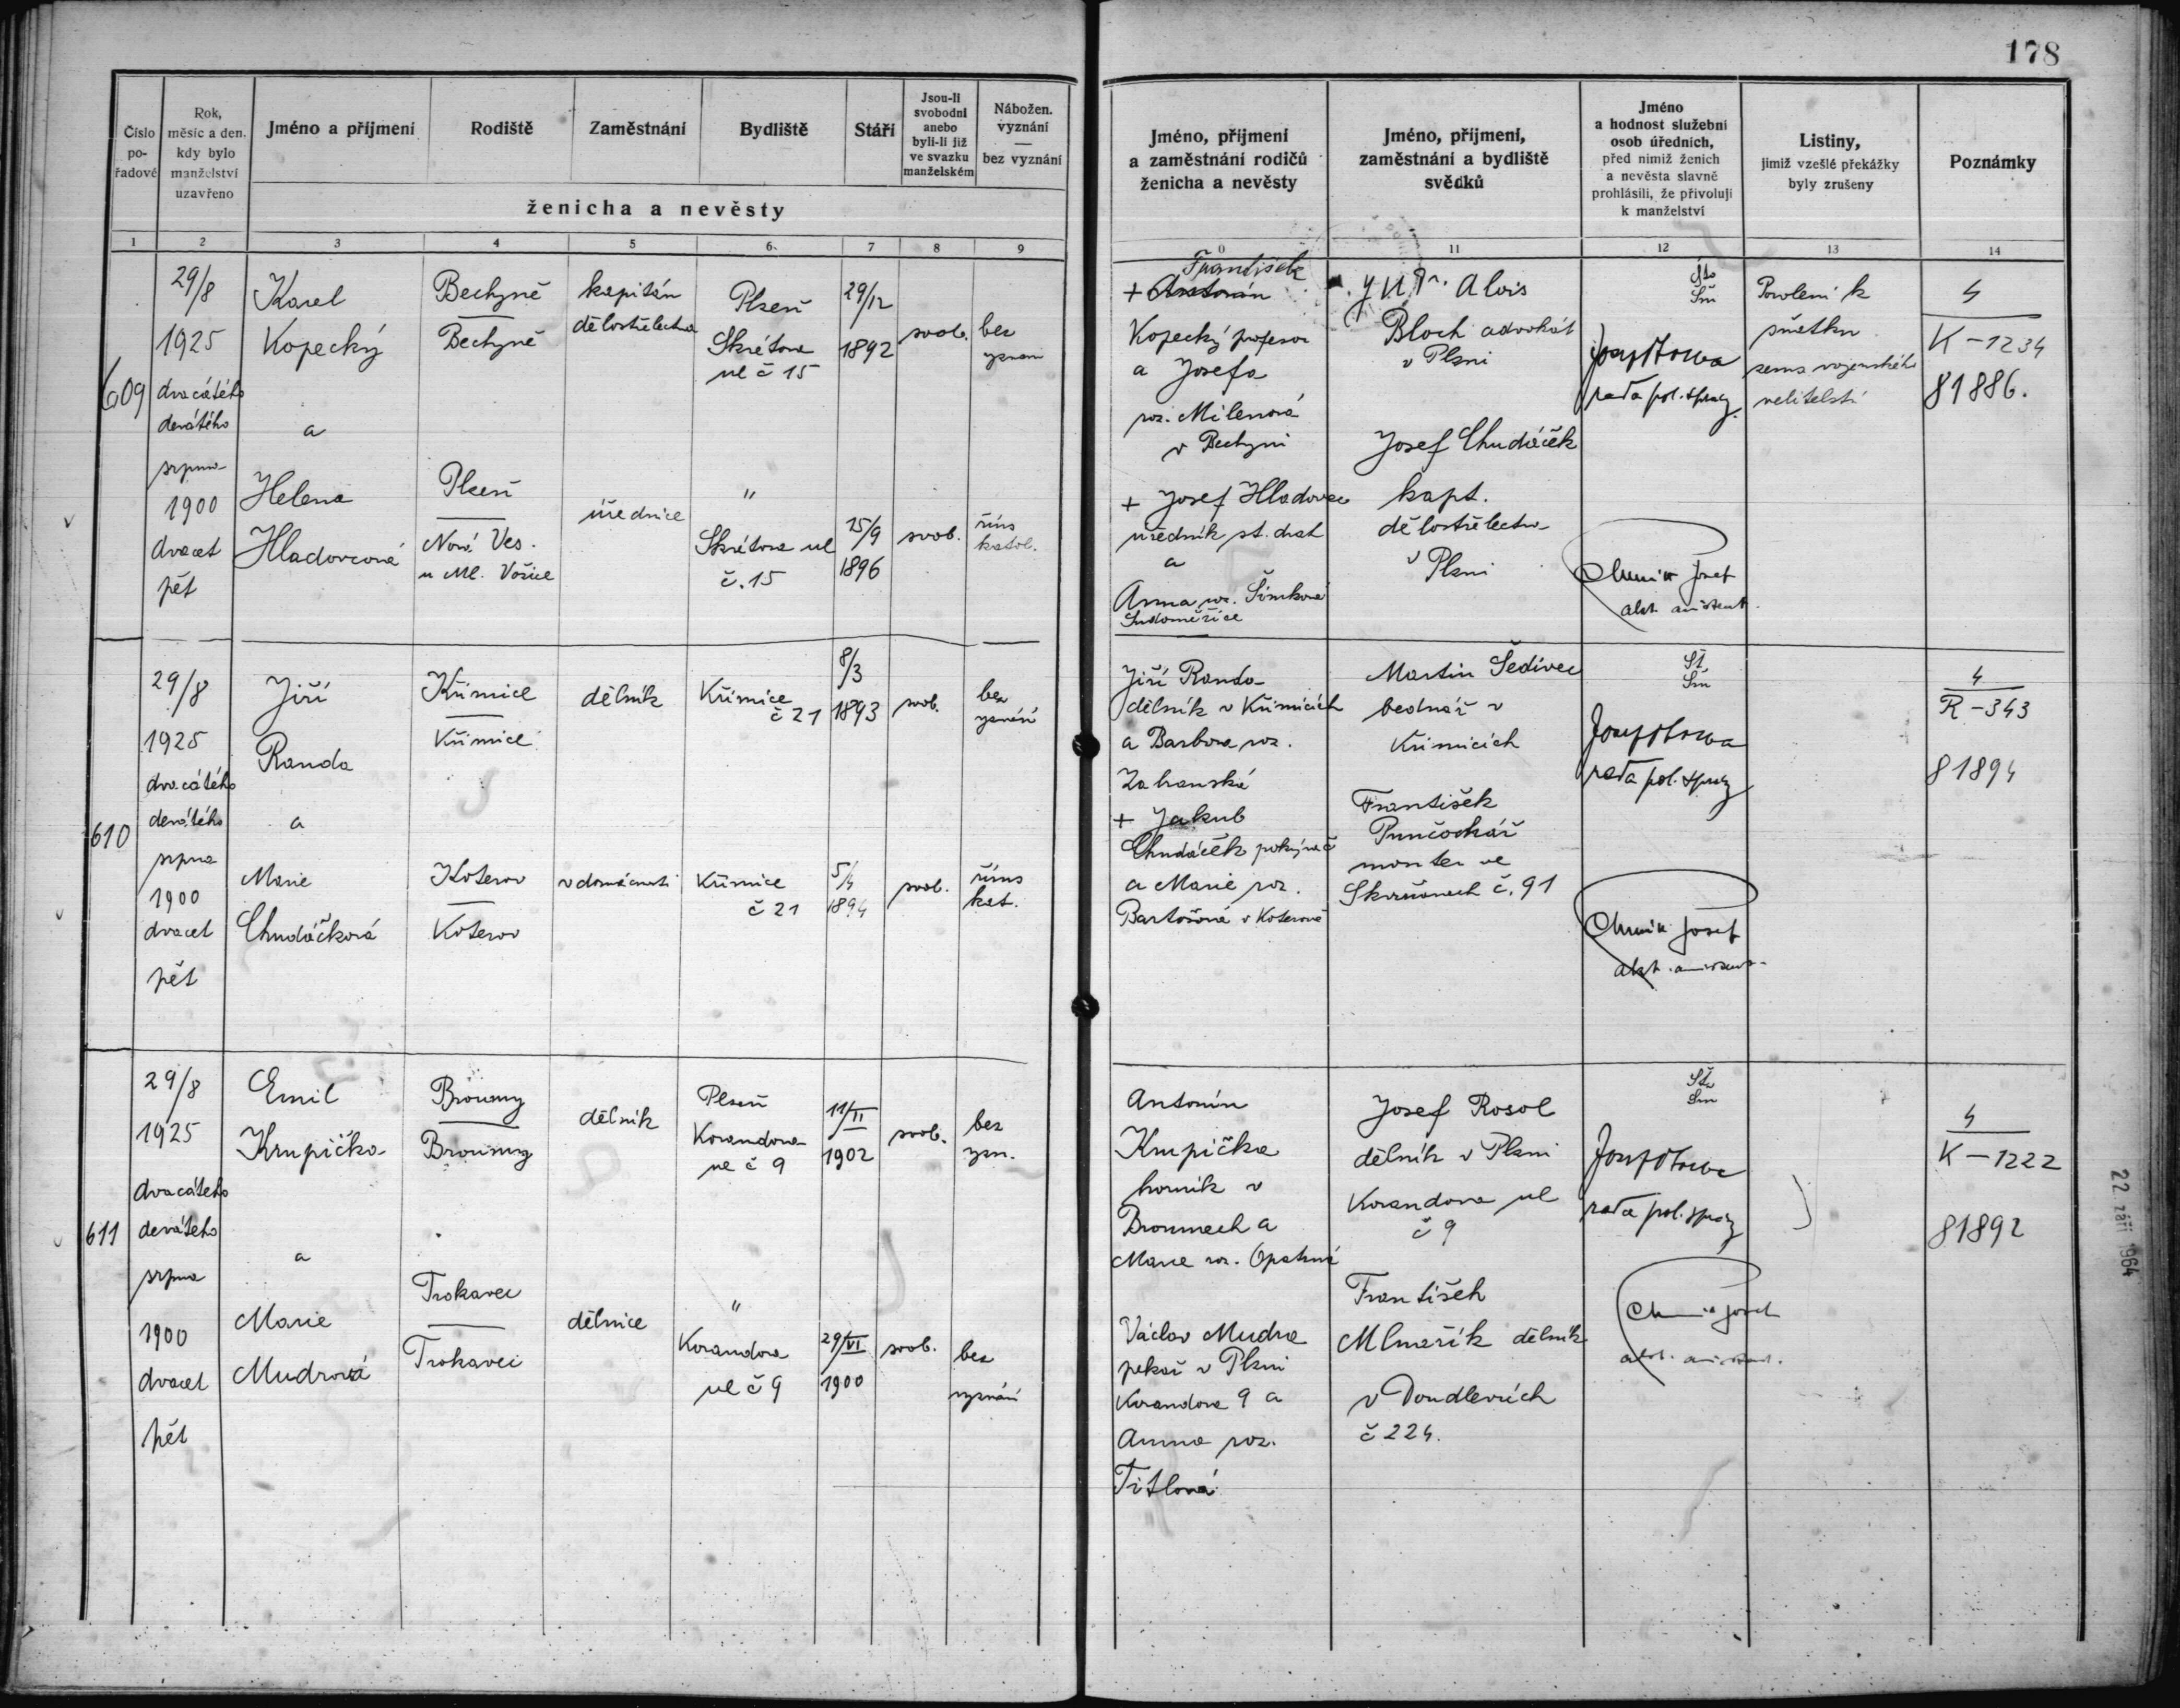 178
Číslo po-řadové
Rok, měsíc a den, kdy bylo manželství uzavřeno
Jméno a příjmení
Rodiště
Zaměstnání
Bydliště
Stáří
Jsou-li svobodni anebo byli-li již ve svazku manželském
Nábožen. vyznání — bez vyznání
ženicha a nevěsty
Jméno, příjmení a zaměstnání rodičů ženicha a nevěsty
Jméno, příjmení, zaměstnání a bydliště svědků
Jméno a hodnost služební osob úředních, před nimiž ženich a nevěsta slavně prohlásili, že přivolují k manželství
Listiny, jimiž vzešlé překážky byly zrušeny
Poznámky
1 2 3 4 5 6 7 8 9
11 12 13 14
609
29/8
1925
dvacátého
devátého
srpna
1900
dvacet
pět
Karel
Kopecký
a
Helena
Hladovcová
Bechyně
Bechyně
Plzeň
Nová Ves.
u Ml. Vožice
kapitán
dělostřelectva
úřednice
Plzeň
Skrétova
ul č 15
"
Skrétova ul
č. 15
29/12
1892
15/9
1896
svob.
svob.
bez
řím
katol.
František
+ Antonín
Kopecký profesor
a Josefa
roz. Milerová
v Bechyni
+ Josef Hladovec
úředník st. drah
a
Anna roz. Šimková
Sudoměřice
JUDr. Alois
Bloch advokát
v Plzni
Josef Chudáček
kapt.
dělostřelectva
v Plzni
rada pol. správy
Josef
Povolení k
sňatku
zems vojenského
velitelství
4
K-1234
81886.
610
29/8
1925
dvacátého
devátého
srpna
1900
dvacet
pět
Jiří
Randa
a
Marie
Chudáčková
Křimice
Křimice
Koterov
Koterov
dělník
v domácnosti
Křimice
č 21
Křimice
č 21
8/3
1893
5/4
1894
svob.
svob.
bez
vyznání
říms
kat.
Jiří Randa
dělník v Křimicích
a Barbora roz.
Zahanská
+ Jakub
Chudáček pokrývač
a Marie roz.
Bartošová v Koterově
Martin Šedivec
bednář v
Křimicích
František
Punčochář
monter ve
Skvrňanech č. 91
rada pol. správy
Josef
4
R-343
81894
611
29/8
1925
dvacátého
devátého
srpna
1900
dvacet
pět
Emil
Krupička
a
Marie
Mudrová
Broumy
Broumy
Trokavec
Trokavec
dělník
dělnice
Plzeň
Korandova
ul č 9
"
Korandova
ul č 9
11/II
1902
29/VI
1900
svob.
svob.
bez
vyzn.
bez
vyznání
Antonín
Krupička
horník v
Broumech a
Marie roz. Opatrná
Václav Mudra
pekař v Plzni
Korandova 9 a
Anna roz.
Titlová
Josef Rosol
dělník v Plzni
Korandova ul
č 9
František
Mlnařík dělník
v Doudlevcích
č 224.
rada pol. správy
Josef
4
K-1222
81892
22. září 1964